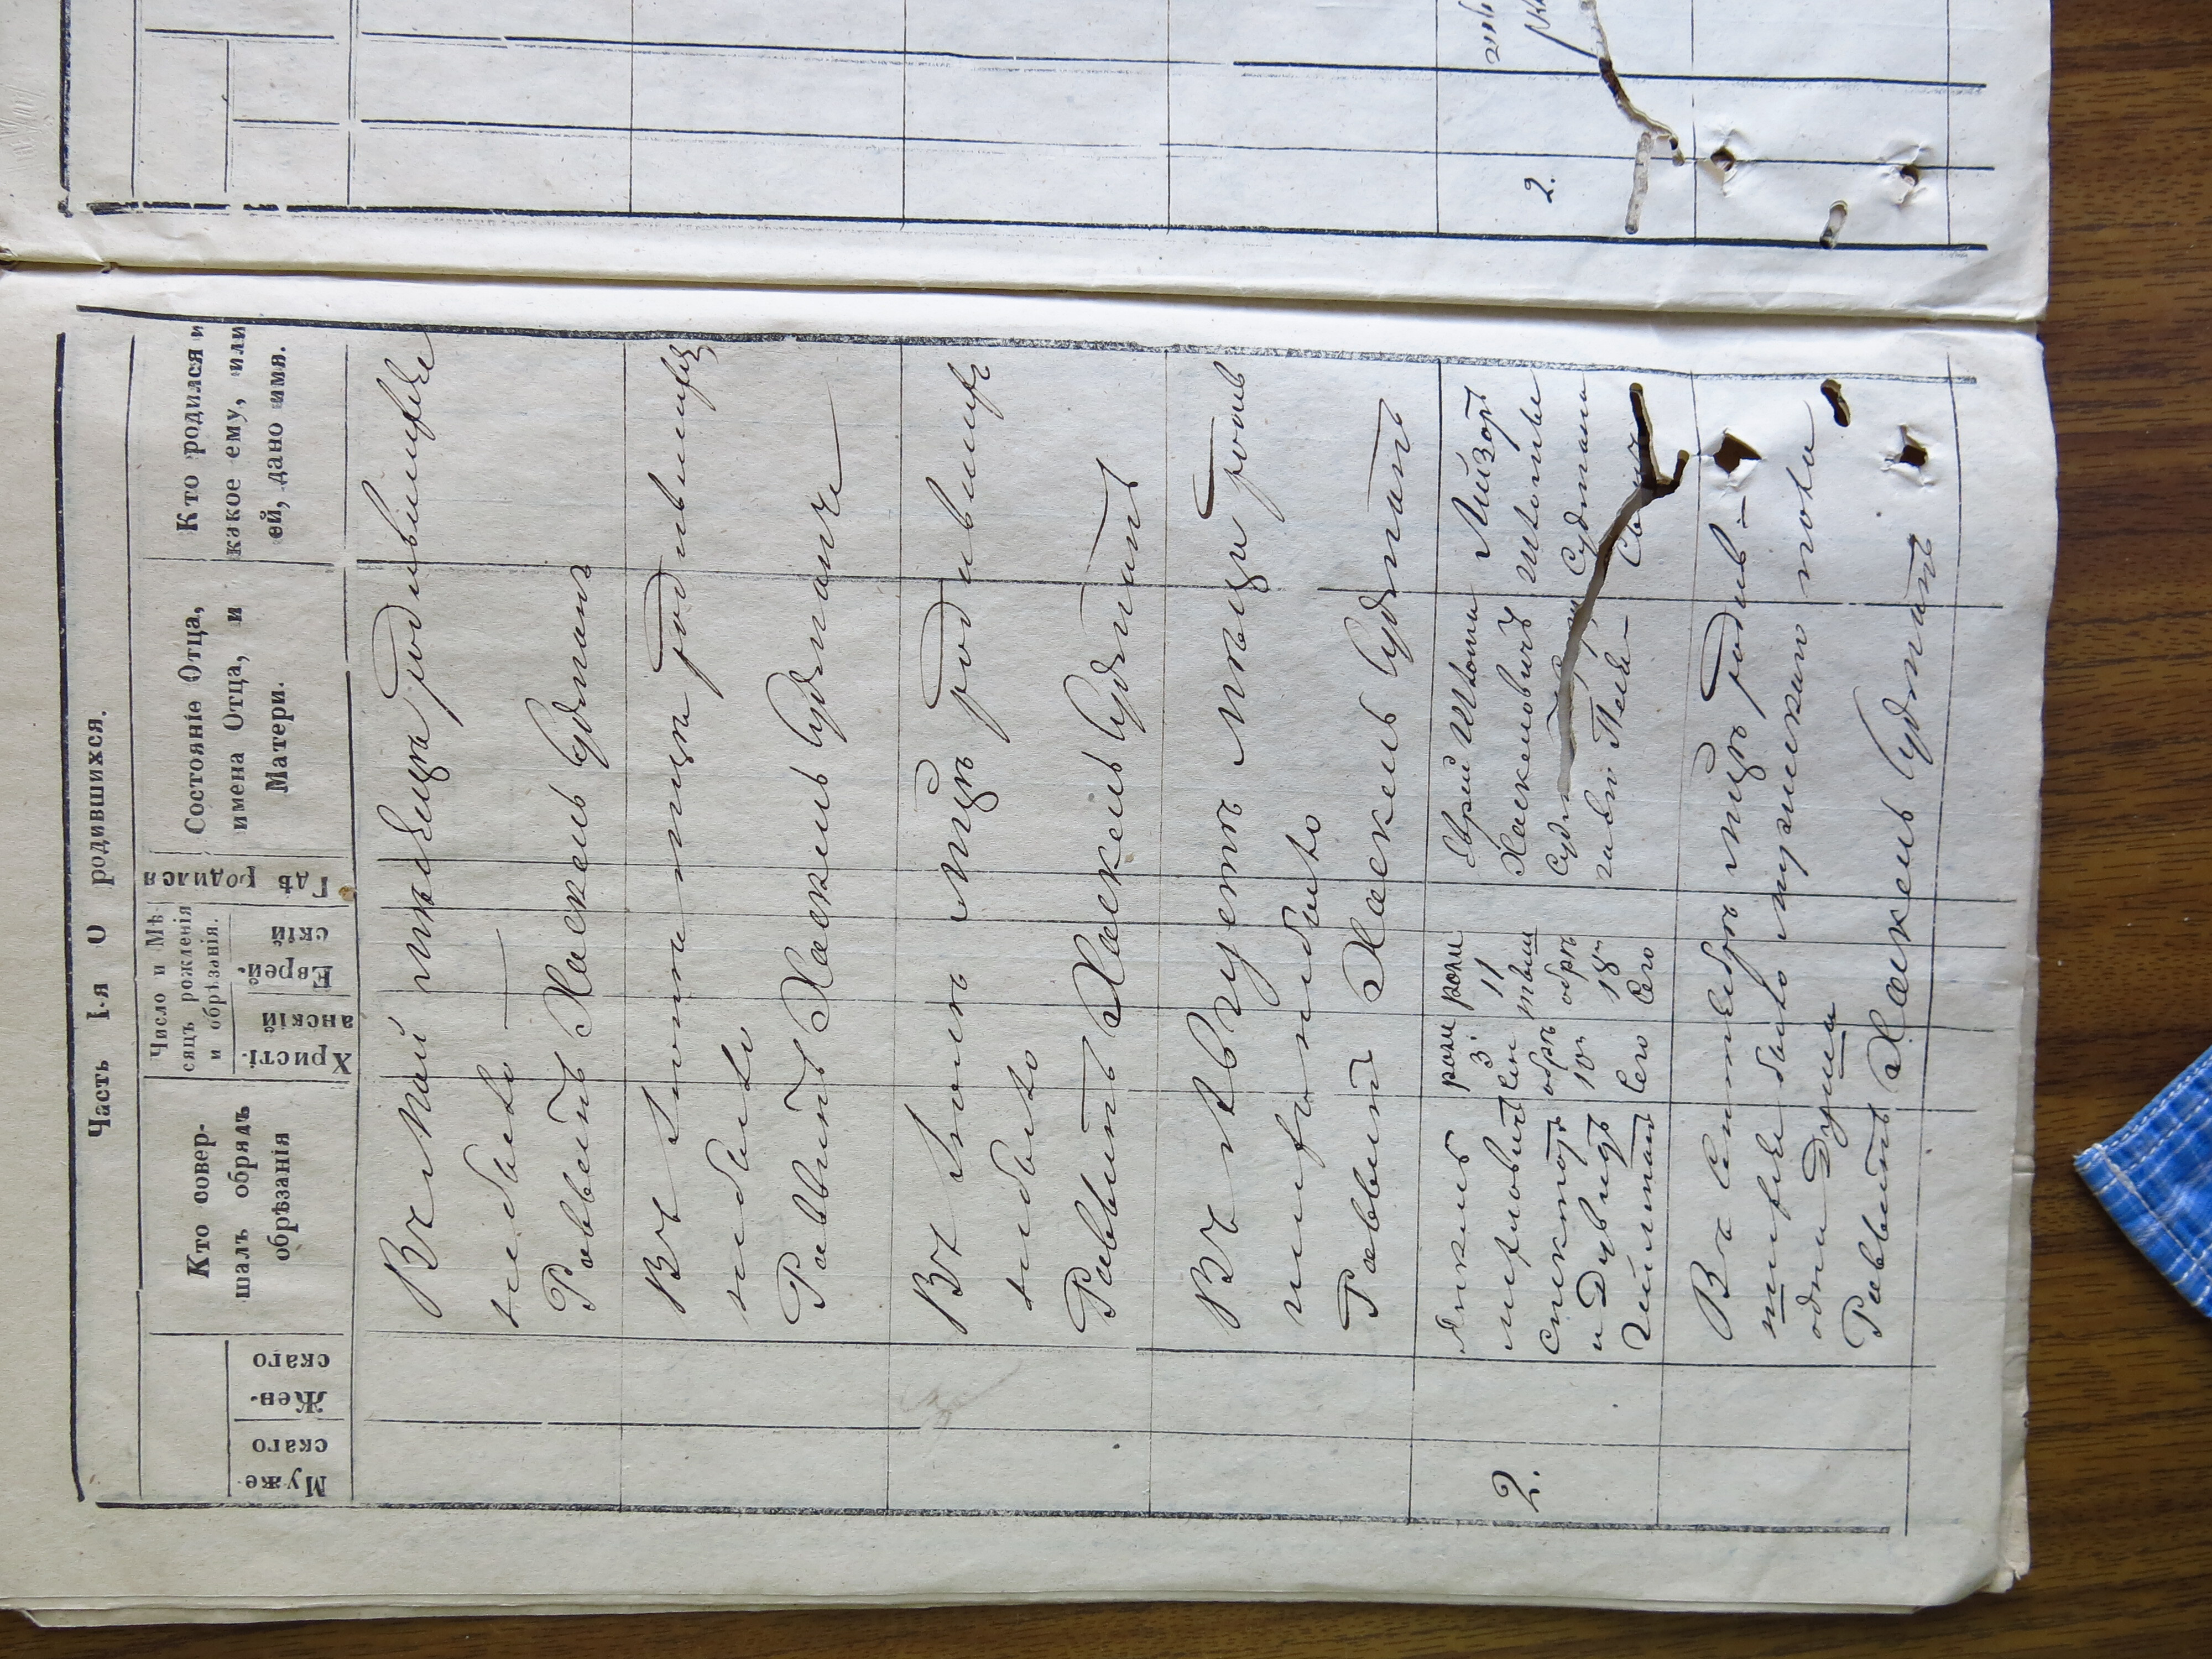 Часть I-я О родившихся.
Муже-
скаго
Жен-
скаго
Кто совер-
шалъ обрядъ
обрѣзанія
Число и Мѣ-
сяцъ рожденія
и обрѣзанія.
Христі-
анскій
Еврей-
скій
Гдѣ родился
Состояніе Отца,
имена Отца, и
Матери.
Кто родился и
какое ему, или
ей, дано имя.
Въ Маи месеце родившихся
небыло
Раввинъ Хаскель Судманъ
Въ Іюни месеце родившихся
небыло
Раввинъ Хаскель Судманъ
Въ Іюль мцѣ родившихъ
небыло
Раввинъ Хаскель Судманъ
Въ Августѣ месеци родив
шихъ небыло
Раввинъ Хаскель Судманъ
2.
Спекторъ
и Давидъ
роди
3
Сен
обрѣ
10
Сего
роди
11
обрѣ
18
Сего
Еврей Шлома
Хаскелевичъ
Лейзоръ
Шлома
Судмана
Сынъ
Въ Сентебрѣ мцѣ родив-
шихся было мужескаго пола
одна Душа
Раввинъ Хаскель Судманъ
2.